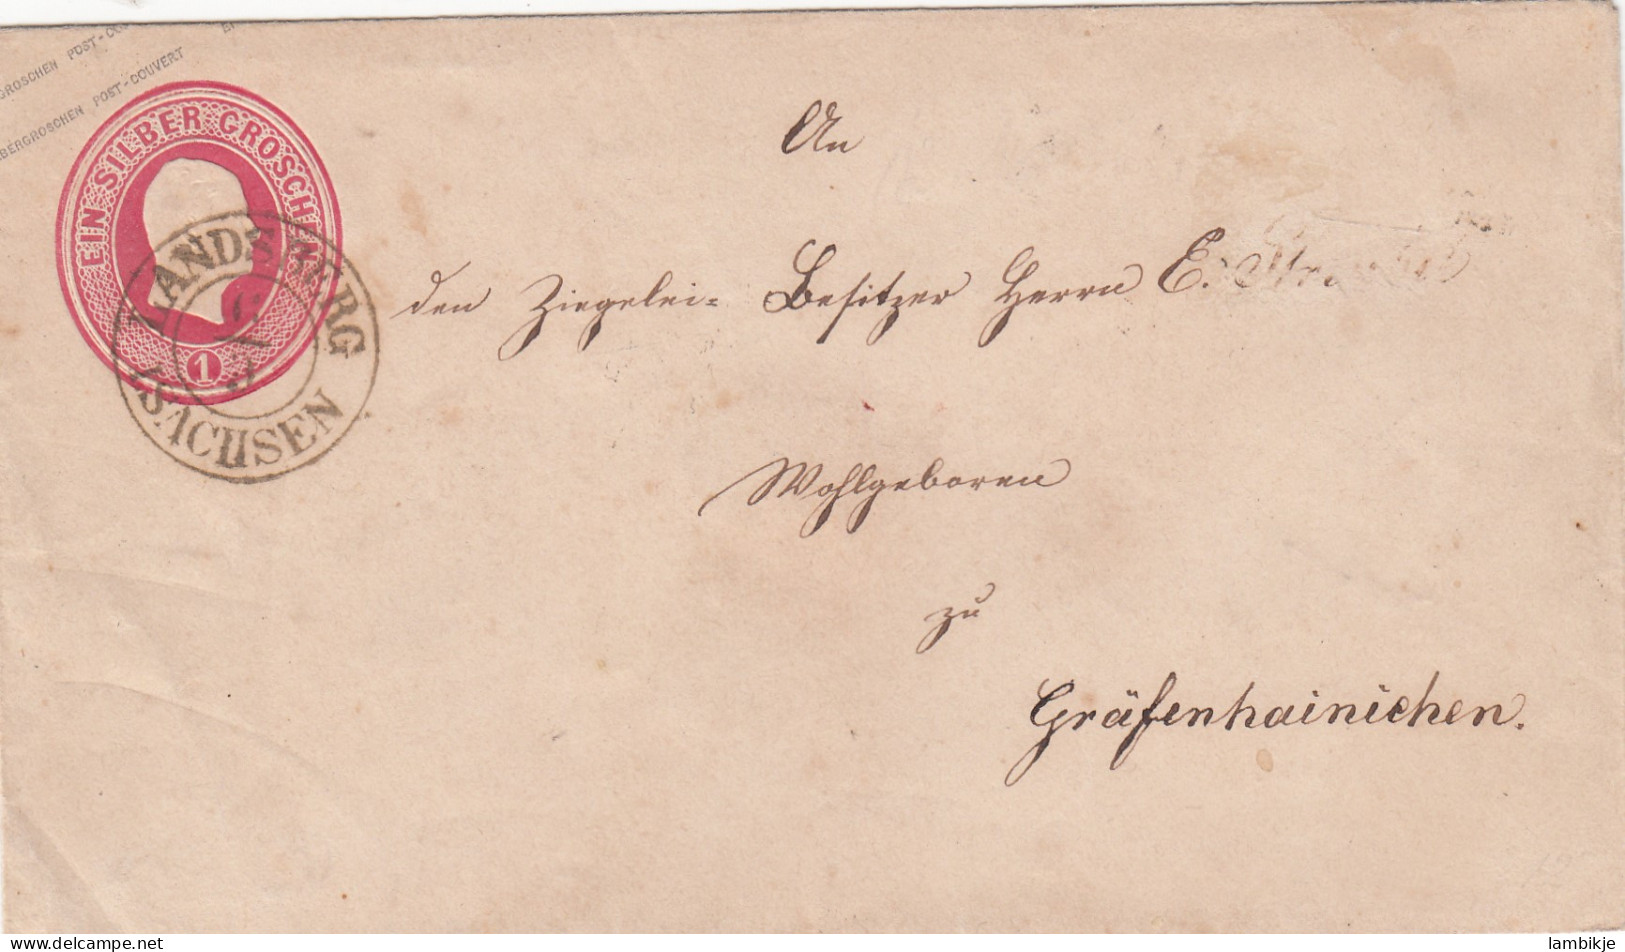 GROSCHEN POST-COUVERT
BERGROSCHEN POST-COUVERT
EIN SILBER GROSCHEN
1
LANDSBERG
SACHSEN
An
den Ziegelei= Besitzer Herrn E.
Wohlgeboren
zu
Gräfenhainichen.
lambikje